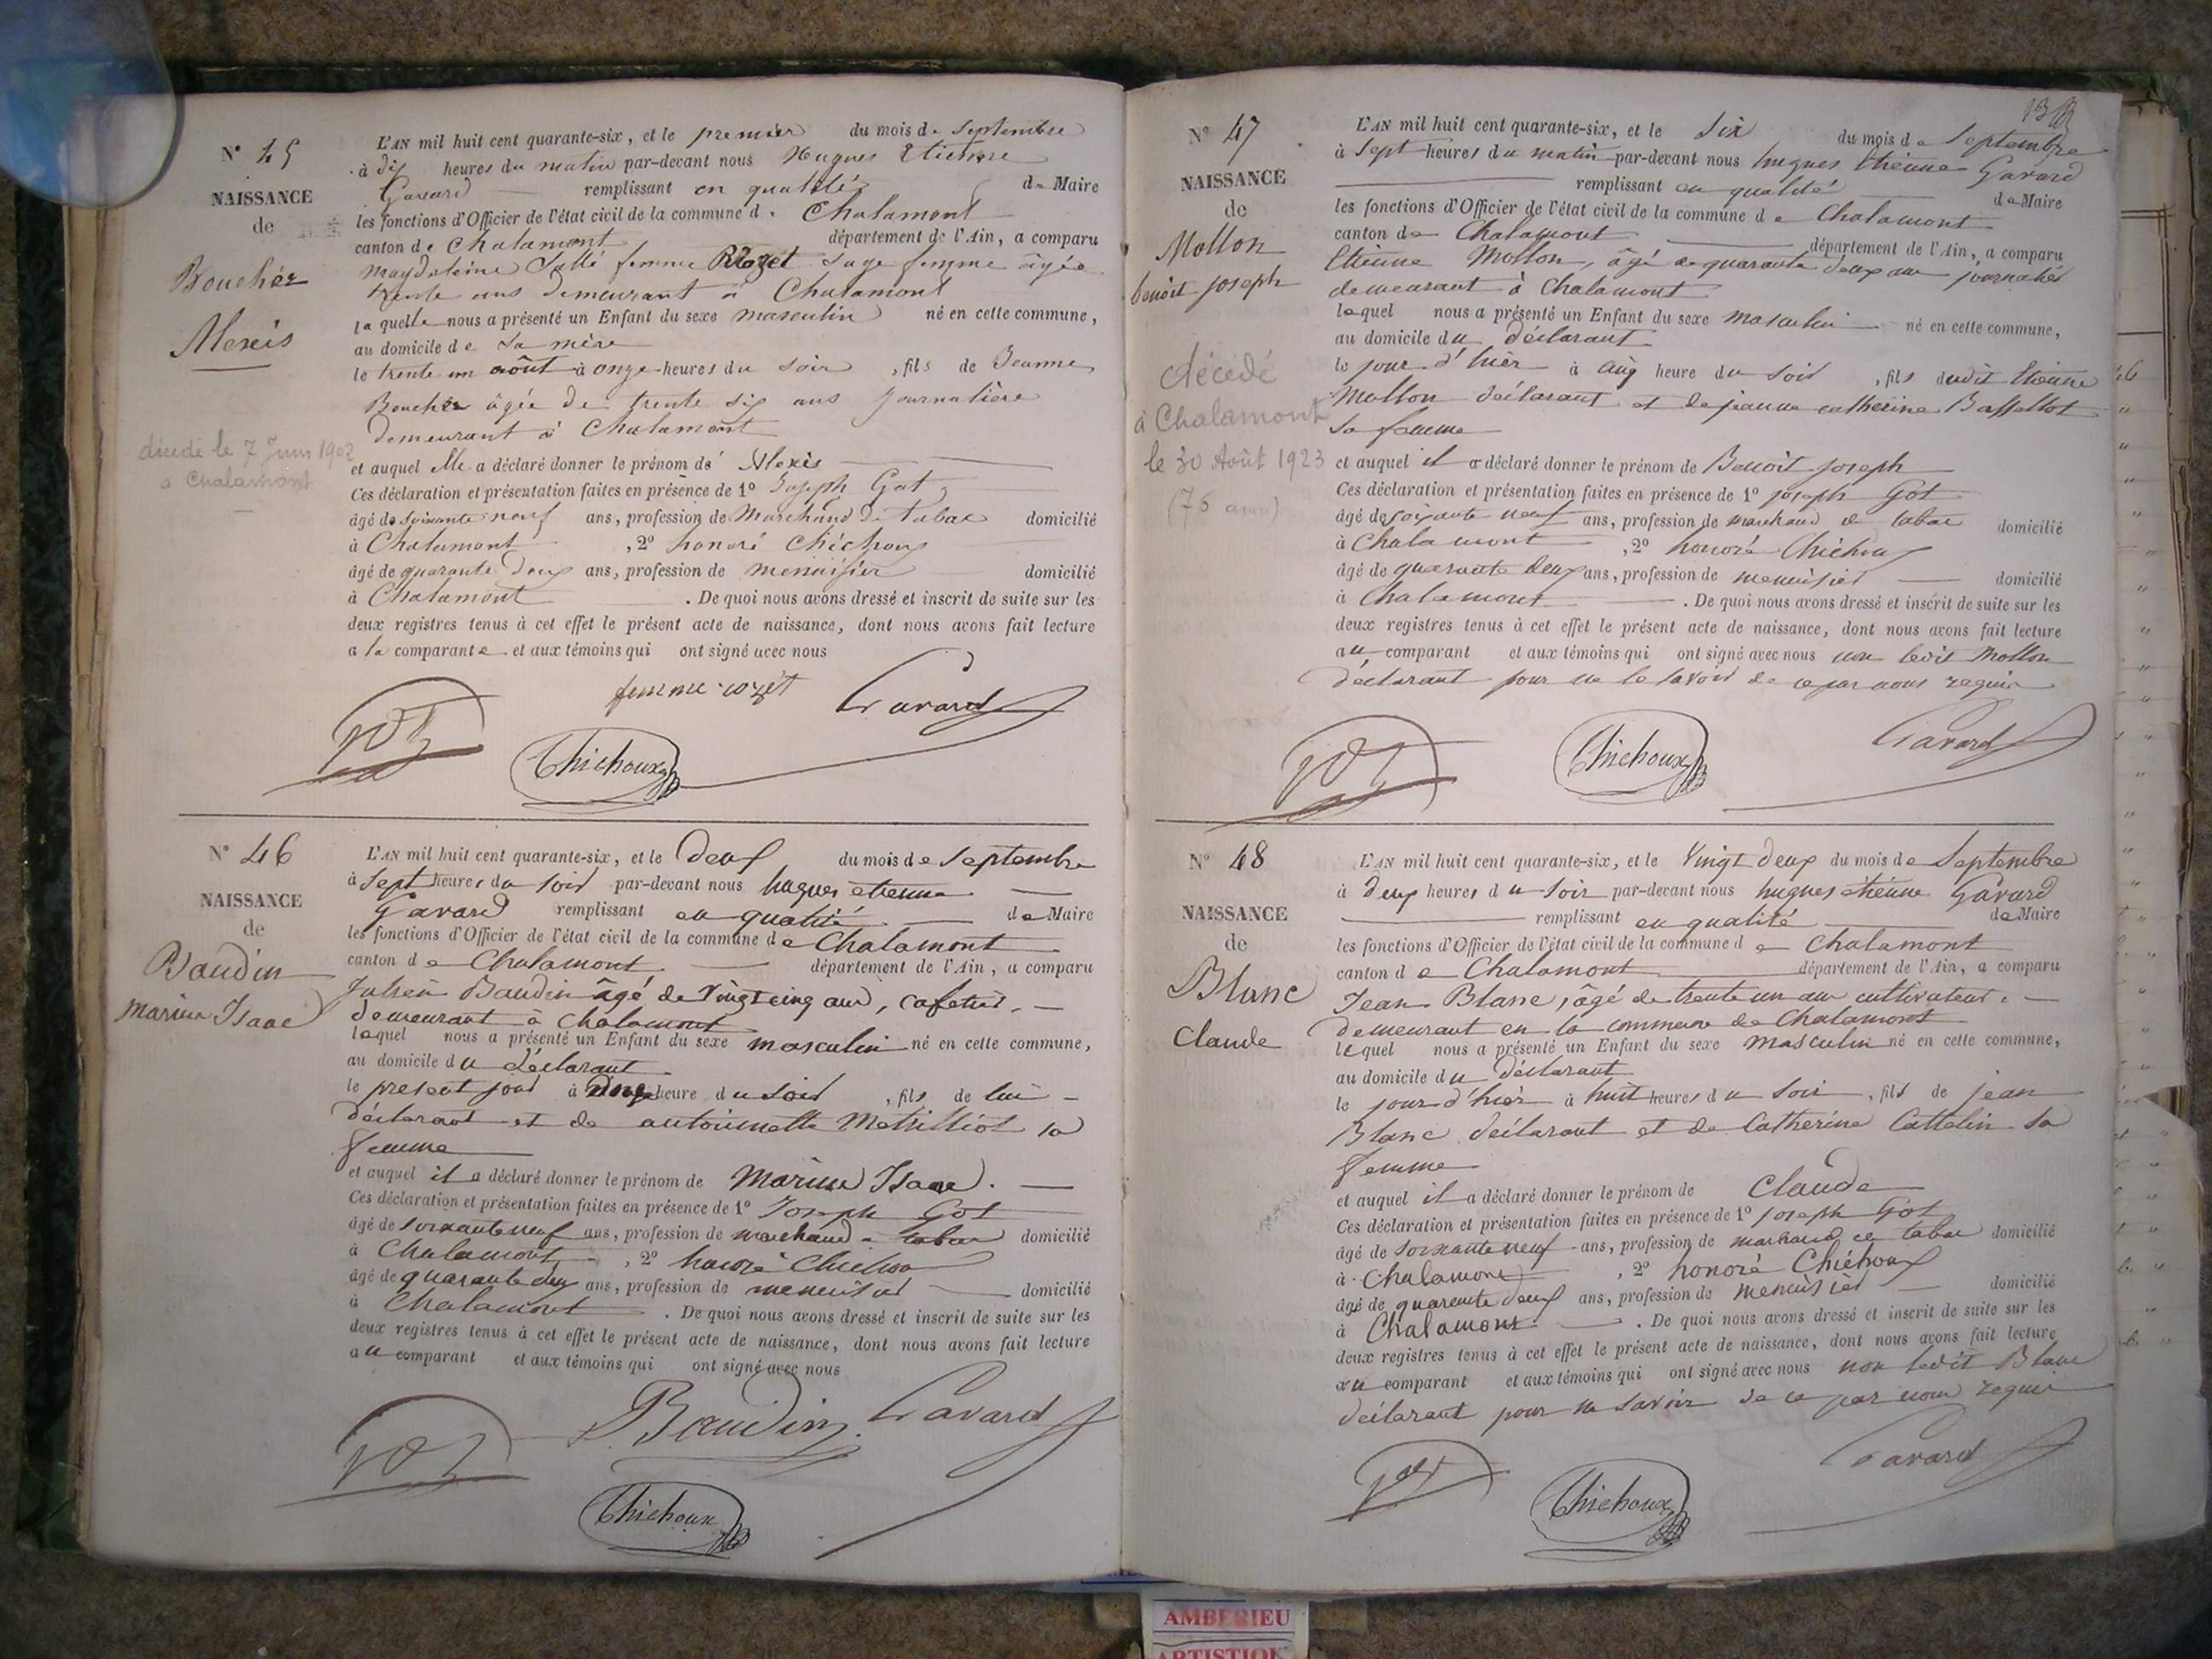 N° 45
NAISSANCE
de
Boucher
Alexis
décédé le 7 Juin 1902
a Chalamont
L'AN mil huit cent quarante-six, et le premier du mois de Septembre
à dix heures du matin par-devant nous Hugues Etienne
Gavard remplissant en qualité de Maire
les fonctions d'Officier de l'état civil de la commune d. Chalamont
canton de Chalamont département de l'Ain, a comparu
Magdeleine femme Rozet Sage femme âgée
trente ans demeurant à Chalamont
la quelle nous a présenté un Enfant du sexe masculin né en cette commune,
au domicile de Sa mère
le trente un août à onze heures du Soir, fils de Jeanne
Boucher âgée de trente six ans Journalière
demeurant à Chalamont
et auquel Elle a déclaré donner le prénom de Alexis
Ces déclaration et présentation faites en présence de 1° Joseph Got,
âgé de soixante neuf ans, profession de Marchand de tabac domicilié
à Chalamont, 2° honoré Chichoux
âgé de quarante deux ans, profession de menuisier domicilié
à Chalamont. De quoi nous avons dressé et inscrit de suite sur les
deux registres tenus à cet effet le présent acte de naissance, dont nous avons fait lecture
a la comparante et aux témoins qui ont signé avec nous
femme rozet Gavard
got
Chichoux
N° 46
NAISSANCE
de
Baudin
Marius Isaac
L'AN mil huit cent quarante-six, et le deux du mois de Septembre
à Sept heures du soir par-devant nous hugues étienne
Gavard remplissant en qualité de Maire
les fonctions d'Officier de l'état civil de la commune de Chalamont
canton de Chalamont département de l'Ain, a comparu
Julien Baudin âgé de vingt cinq ans, cafetier,
demeurant à Chalamont
lequel nous a présenté un Enfant du sexe masculin né en cette commune,
au domicile du déclarant
le present jour à heure du soir, fils de lui
déclarant et de antoinette Metrilliot sa
femme
et auquel il a déclaré donner le prénom de Marius Isaac.
Ces déclaration et présentation faites en présence de 1° Joseph Got
âgé de soixante neuf ans, profession de marchand de tabac domicilié
à Chalamont, 2° honoré Chichoux
âgé de quarante deux ans, profession de menuisier domicilié
à Chalamont. De quoi nous avons dressé et inscrit de suite sur les
deux registres tenus à cet effet le présent acte de naissance, dont nous avons fait lecture
au comparant et aux témoins qui ont signé avec nous
got Baudin Gavard
Chichoux
N° 47
NAISSANCE
de
Mollon
benoit joseph
décédé
à Chalamont
le 30 Août 1923
(75 ans)
L'AN mil huit cent quarante-six, et le Six du mois de Septembre
à Sept heures du matin par-devant nous hugues étienne Gavard
remplissant en qualité de Maire
les fonctions d'Officier de l'état civil de la commune de Chalamont
canton de Chalamont département de l'Ain, a comparu
Etienne Mollon, âgé de quarante deux ans journalier
demeurant à Chalamont
lequel nous a présenté un Enfant du sexe masculin né en cette commune,
au domicile du déclarant
le jour d'hier à cinq heure du soir, fils dudit Etienne
Mollon déclarant et de jeanne catherine Baffellot
sa femme
et auquel il a déclaré donner le prénom de Benoit joseph
Ces déclaration et présentation faites en présence de 1° joseph Got
âgé de soixante neuf ans, profession de marchand de tabac domicilié
à Chalamont, 2° honoré Chichoux
âgé de quarante deux ans, profession de menuisier domicilié
à Chalamont. De quoi nous avons dressé et inscrit de suite sur les
deux registres tenus à cet effet le présent acte de naissance, dont nous avons fait lecture
au comparant et aux témoins qui ont signé avec nous non ledit Mollon
déclarant pour ne le savoir de ce par nous requis
got Chichoux Gavard
N° 48
NAISSANCE
de
Blanc
Claude
L'AN mil huit cent quarante-six, et le vingt deux du mois de Septembre
à deux heures du soir par-devant nous hugues étienne Gavard
remplissant en qualité de Maire
les fonctions d'Officier de l'état civil de la commune de Chalamont
canton de Chalamont département de l'Ain, a comparu
Jean Blanc, âgé de trente un ans cultivateur,
demeurant en la commune de Chalamont
lequel nous a présenté un Enfant du sexe masculin né en cette commune,
au domicile du déclarant
le jour d'hier à huit heures du soir, fils de jean
Blanc déclarant et de Catherine Cattelin sa
femme
et auquel il a déclaré donner le prénom de Claude
Ces déclaration et présentation faites en présence de 1° joseph Got
âgé de soixante neuf ans, profession de marchand de tabac domicilié
à Chalamont, 2° honoré Chichoux
âgé de quarante deux ans, profession de menuisier domicilié
à Chalamont. De quoi nous avons dressé et inscrit de suite sur les
deux registres tenus à cet effet le présent acte de naissance, dont nous avons fait lecture
au comparant et aux témoins qui ont signé avec nous non ledit Blanc
déclarant pour ne savoir de ce par nous requis
got Chichoux Gavard
AMBERIEU